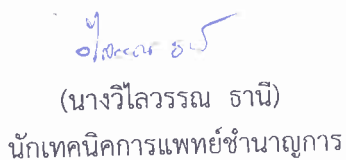 (นางวิไลวรรณ ธานี)
นักเทคนิคการแพทย์ชำนาญการ